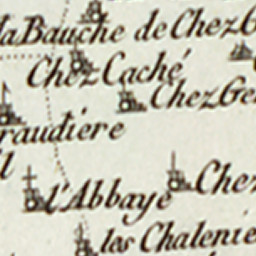 la Bauche de Chez G
Chez Caché
Chez Ge
raudière
l
l'Abbaye
Chez
les Chalenie